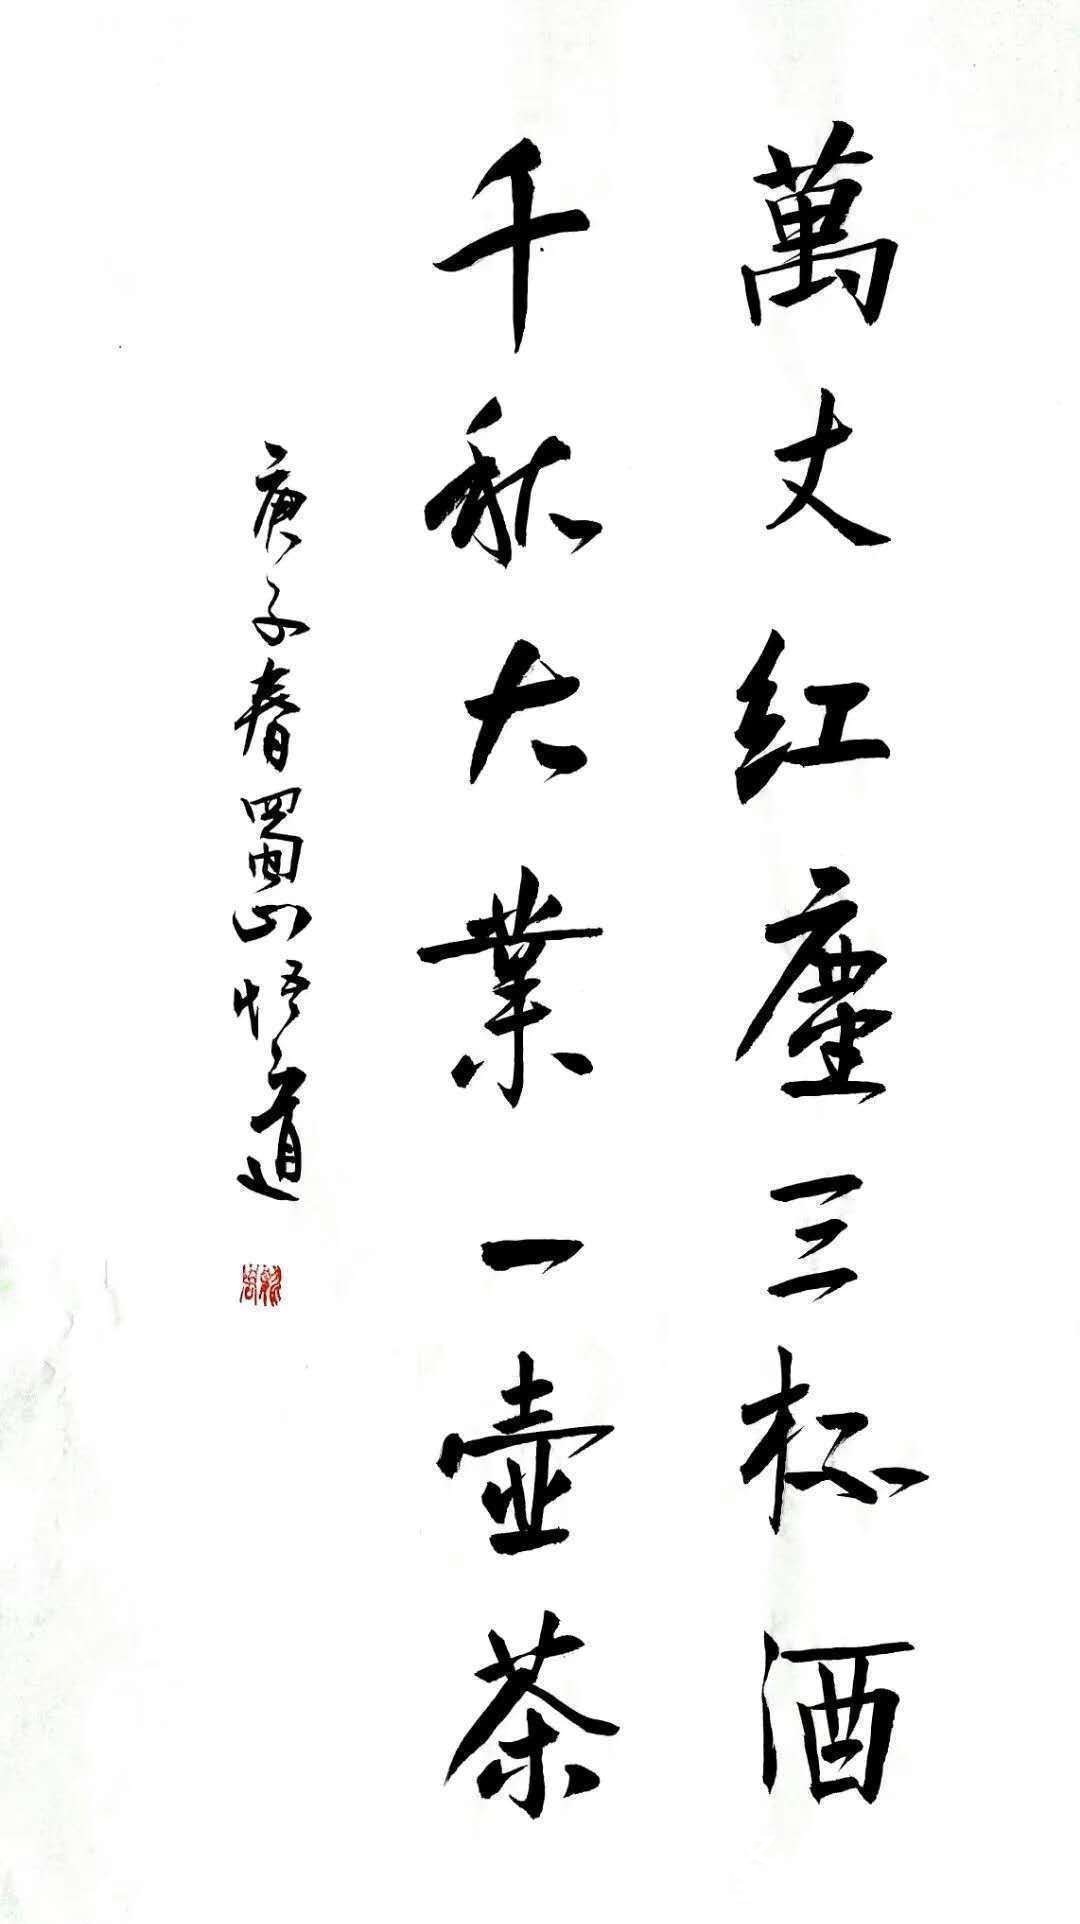 萬丈红塵三杯酒
千秋大業一壺茶
庚子春蜀山悟道